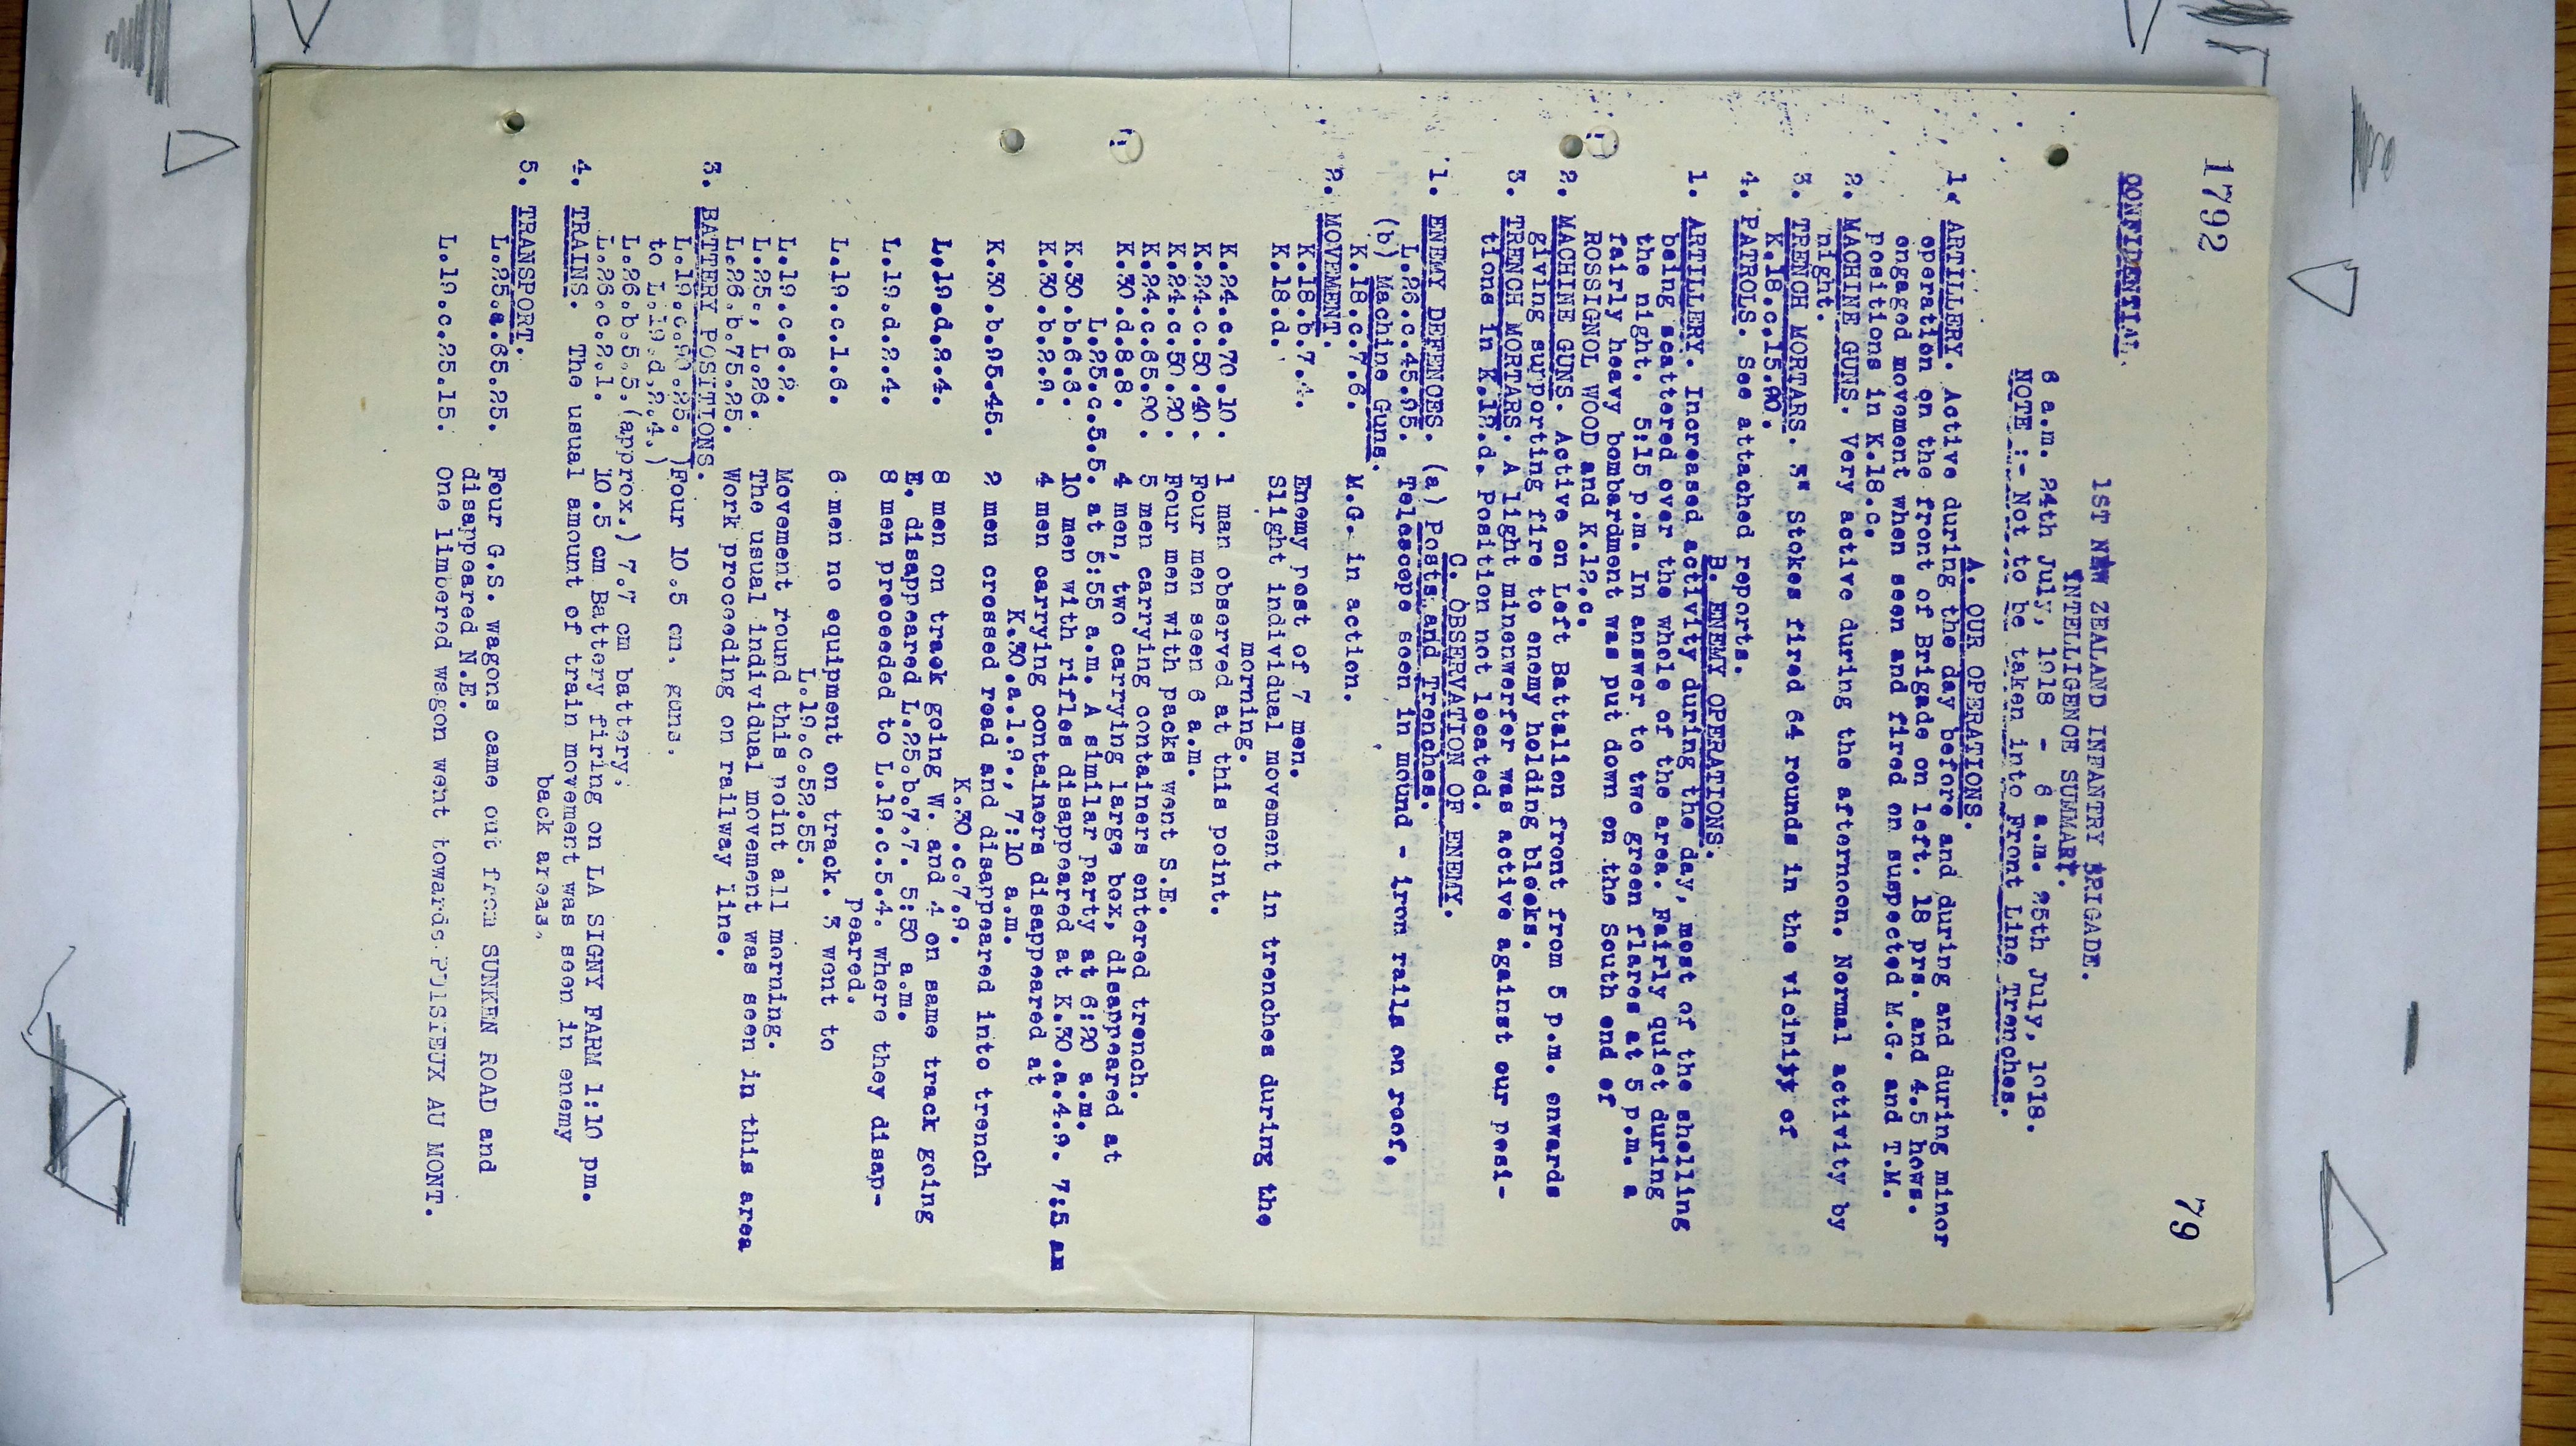 1792
79
CONFIDENTIAL.
1ST NEW ZEALAND INFANTRY BRIGADE.
INTELLIGENCE SUMMARY.
6 a.m. 24th July, 1918 - 6 a.m. 25th July, 1918.
NOTE :- Not to be taken into Front Line Trenches.
A. OUR OPERATIONS.
1. ARTILLERY. Active during the day before and during and during minor
operation on the front of Brigade on left. 18 prs. and 4.5 hows.
engaged movement when seen and fired on suspected M.G. and T.M.
positions in K.18.c.
2. MACHINE GUNS. Very active during the afternoon. Normal activity by
night.
3. TRENCH MORTARS. 3" Stokes fired 64 rounds in the vicinity of
K.18.c.15.90.
4. PATROLS. See attached reports.
B. ENEMY OPERATIONS.
1. ARTILLERY. Increased activity during the day, most of the shelling
being scattered over the whole of the area. Fairly quiet during
the night. 5:15 p.m. In answer to two green flares at 5 p.m. a
fairly heavy bombardment was put down on the South end of
ROSSIGNOL WOOD and K.12.c.
2. MACHINE GUNS. Active on Left Battalion front from 5 p.m. onwards
giving supporting fire to enemy holding blocks.
3. TRENCH MORTARS. A light minenwerfer was active against our posi-
tions in K.12.d. Position not located.
C. OBSERVATION OF ENEMY.
1. ENEMY DEFENCES. (a) Posts and Trenches.
L.26.c.45.05. Telescope seen in mound - iron rails on roof.
(b) Machine Guns.
K.18.c.7.6. M.G. in action.
2. MOVEMENT.
K.18.b.7.4. Enemy post of 7 men.
K.18.d. Slight individual movement in trenches during the
morning.
K.24.c.70.10. 1 man observed at this point.
K.24.c.50.40. Four men seen 6 a.m.
K.24.c.50.20. Four men with packs went S.E.
K.24.c.65.90. 5 men carrying containers entered trench.
K.30.d.8.8. 4 men, two carrying large box, disappeared at
L.25.c.5.5. at 5:55 a.m. A similar party at 6:20 a.m.
K.30.b.6.6. 10 men with rifles disappeared at K.30.a.4.9. 7:5 am
K.30.b.2.9. 4 men carrying containers disappeared at
K.30.a.1.9., 7:10 a.m.
K.30.b.95.45. 2 men crossed road and disappeared into trench
K.30.c.7.9.
L.19.d.2.4. 8 men on track going W. and 4 on same track going
E. disappeared L.25.b.7.7. 5:50 a.m.
L.19.d.2.4. 8 men proceeded to L.19.c.5.4. where they disap-
peared.
L.19.c.1.6. 6 men no equipment on track. 3 went to
L.19.c.52.55.
L.19.c.6.2. Movement round this point all morning.
L.25., L.26. The usual individual movement was seen in this area
L.26.b.75.25. Work proceeding on railway line.
3. BATTERY POSITIONS.
L.19.c.90.25. )Four 10.5 cm. guns.
to L.19.d.2.4.)
L.26.b.5.5.(approx.) 7.7 cm battery.
L.26.c.2.1. 10.5 cm Battery firing on LA SIGNY FARM 1:10 pm.
4. TRAINS. The usual amount of train movement was seen in enemy
back areas.
5. TRANSPORT.
L.25.a.65.25. Four G.S. wagons came out from SUNKEN ROAD and
disappeared N.E.
L.19.c.25.15. One limbered wagon went towards PUISIEUX AU MONT.